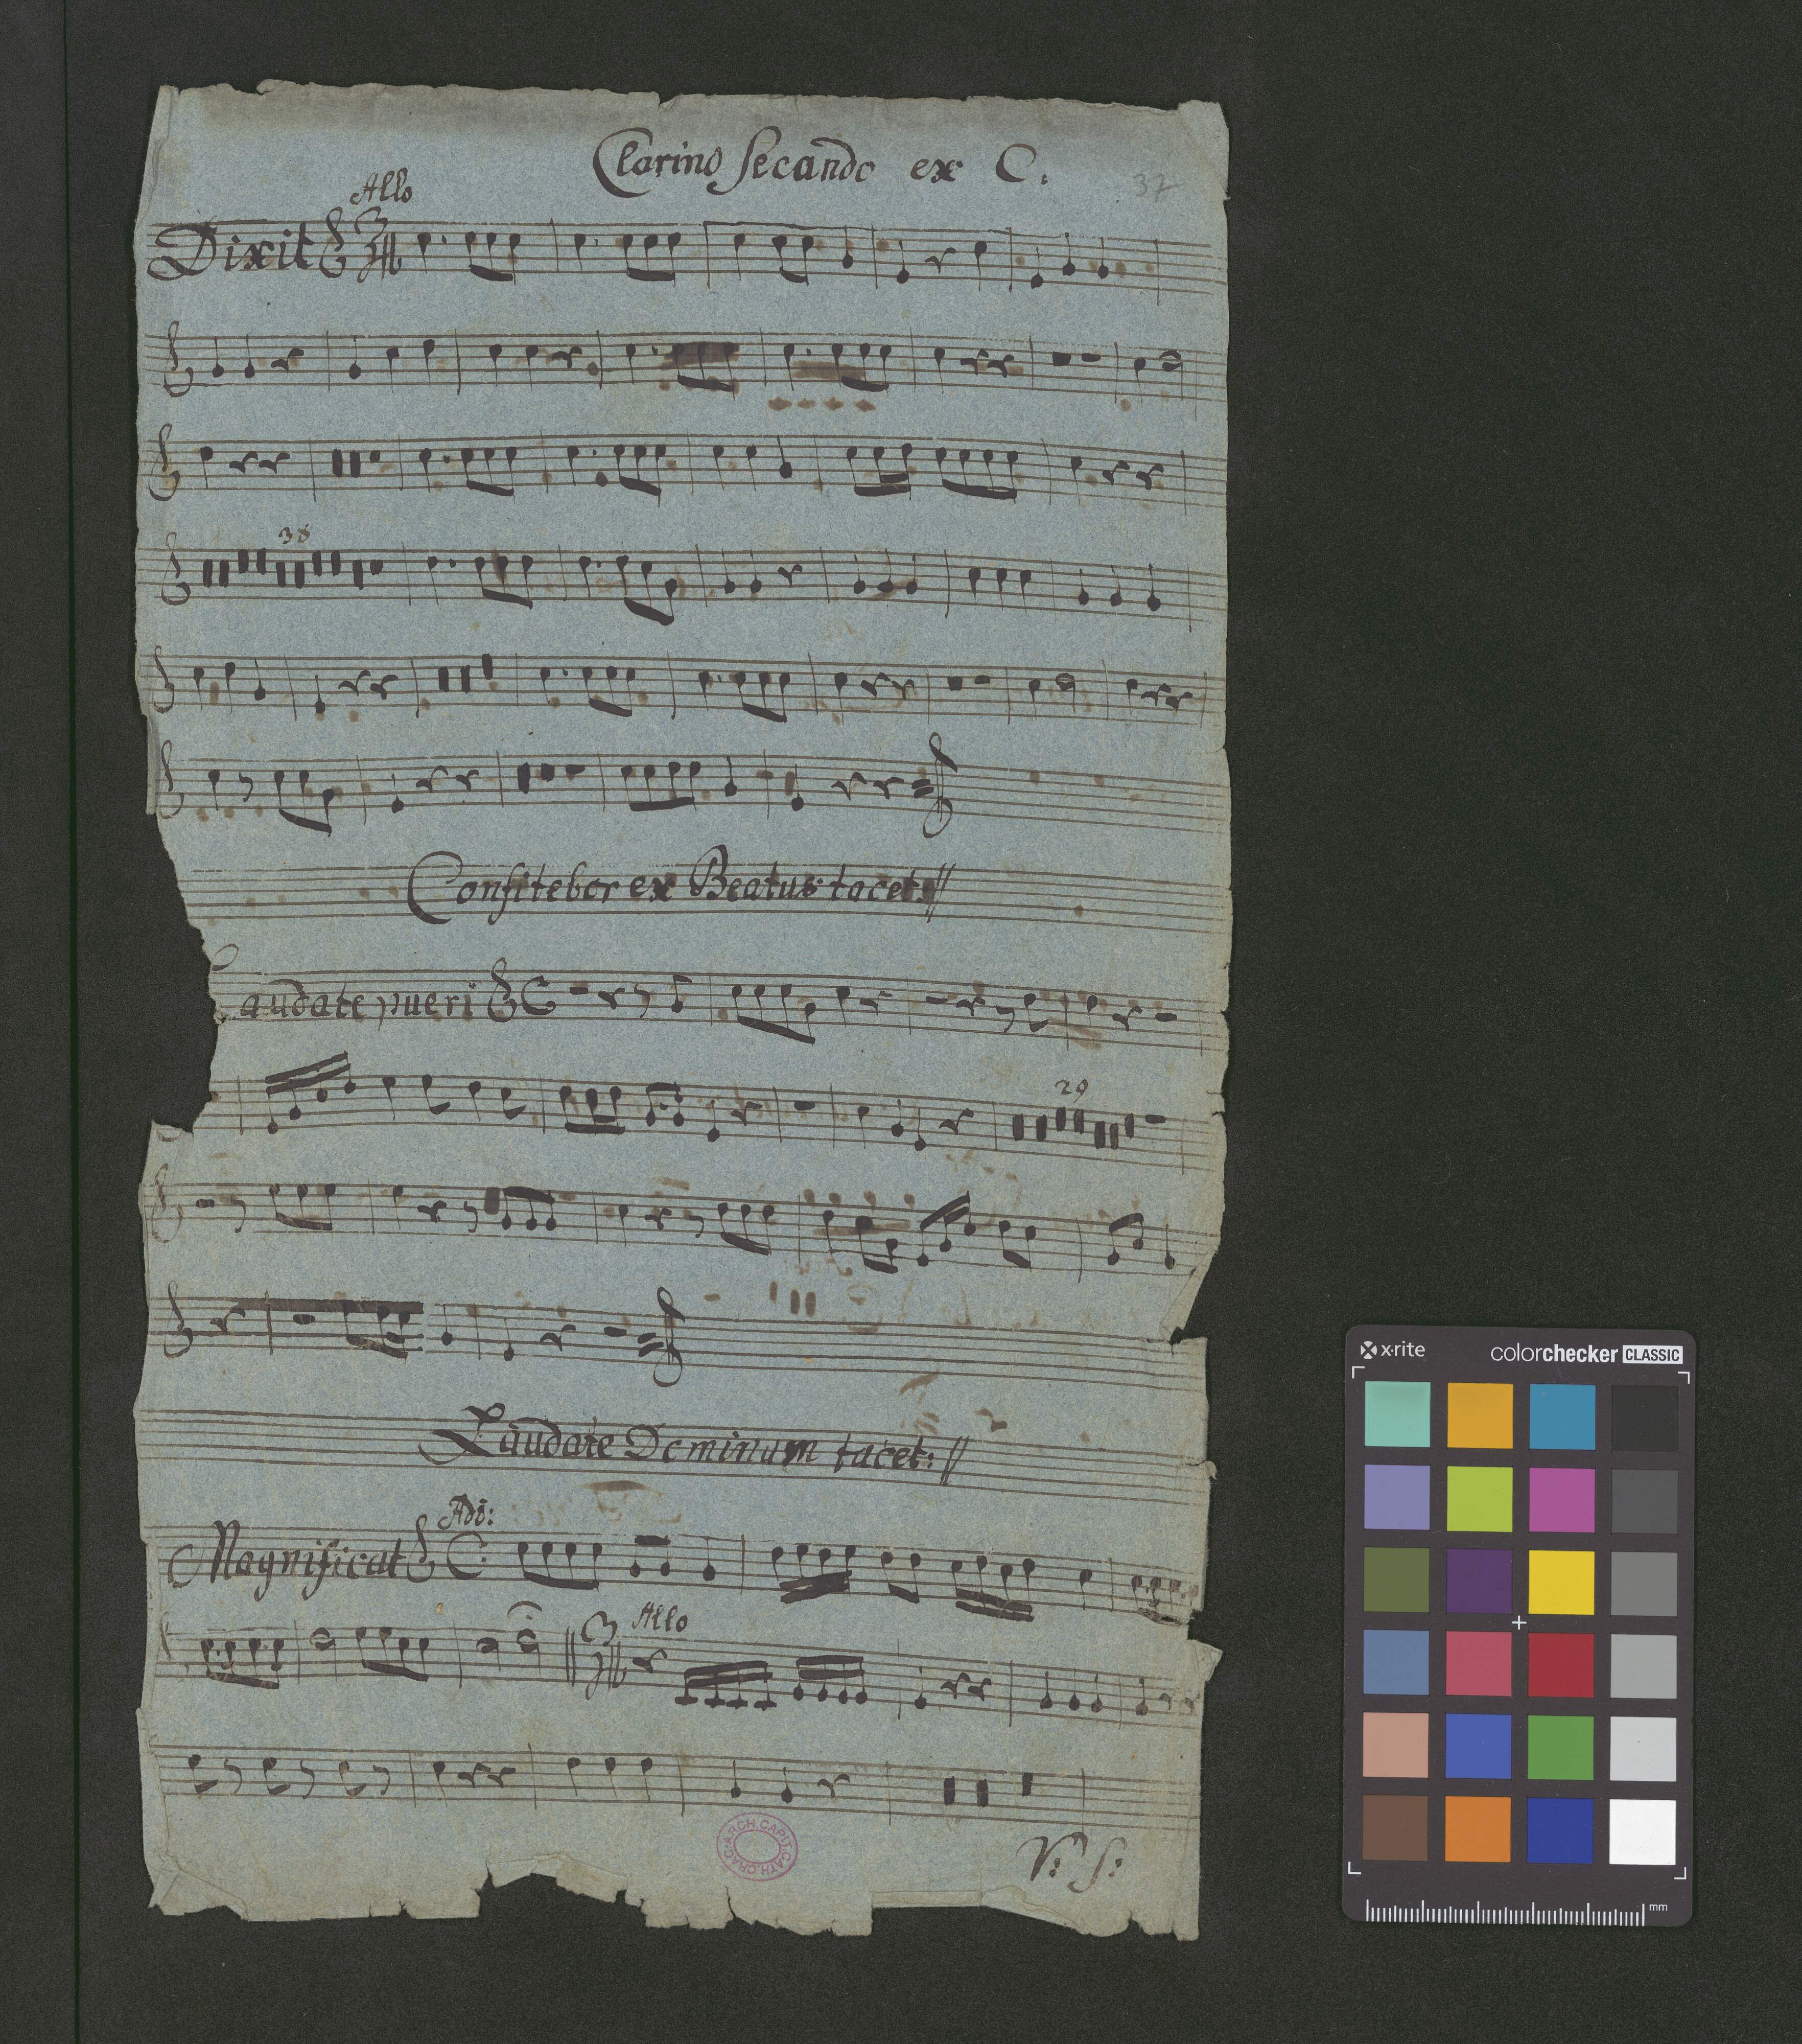 Clarino Secando ex C.
37
Allo
Dixit 3/4
38
Confitebor ex Beatus tacet://
audate pueri C
29
Laudate Dominum tacet://
Ado:
Magnificat C
3/4 Allo
ARCH. CAPIT. CATH. CRAC.
V: S:
x·rite colorchecker CLASSIC
mm